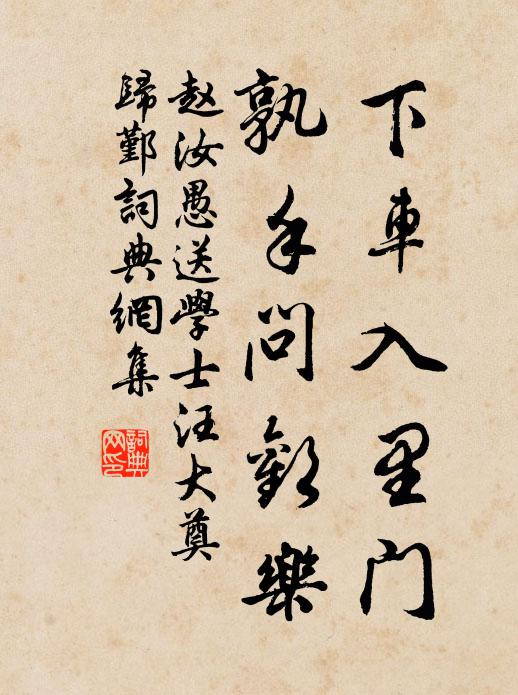 下車入里門
孰手問歡樂
赵汝愚送學士汪大奠
歸鄞詞典網集
詞典网印